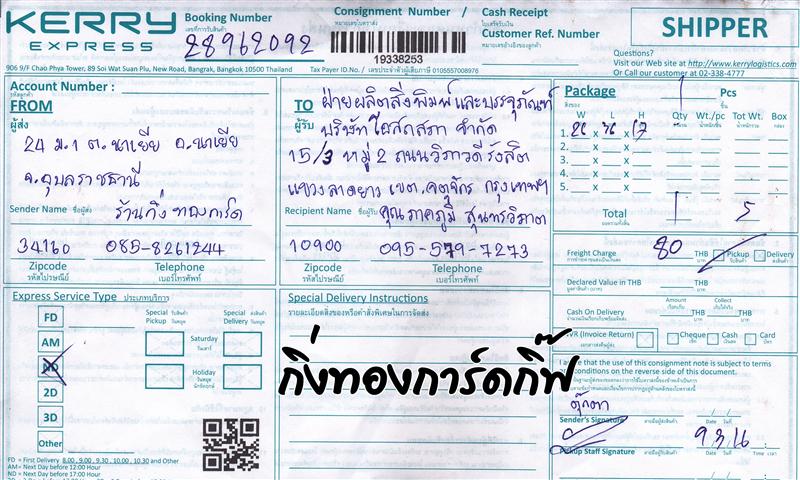 KERRY
EXPRESS
Booking Number
เลขที่การรับสินค้า
28962092
Consignment Number /
หมายเลขใบตราส่ง
19338253
Cash Receipt
ใบเสร็จรับเงิน
Customer Ref. Number
หมายเลขอ้างอิงของลูกค้า
SHIPPER
Questions?
Visit our Web site at http://www.kerrylogistics.com
Or Call our customer at 02-338-4777
906 9/F Chao Phya Tower, 89 Soi Wat Suan Plu, New Road, Bangrak, Bangkok 10500 Thailand
Tax Payer ID.No./ เลขประจำตัวผู้เสียภาษี 0105557008976
Account Number :
รหัสลูกค้า
FROM
ผู้ส่ง
24 ม.1 ต.นาเยีย อ.นาเยีย
จ.อุบลราชธานี
Sender Name ชื่อผู้ส่ง ร้านกิ่งทองการ์ด
34160 085-8261244
Zipcode Telephone
รหัสไปรษณีย์ เบอร์โทรศัพท์
TO
ผู้รับ
ฝ่ายผลิตสิ่งพิมพ์และบรรจุภัณฑ์
บริษัท ไอสถสภา จำกัด
15/3 หมู่ 2 ถนนวิภาวดีรังสิต
แขวงลาดยาว เขต.จตุจักร กรุงเทพฯ
Recipient Name ชื่อผู้รับ คุณภาคภูมิ สุนทรวิภาต
10900 095-579-7273
Zipcode Telephone
รหัสไปรษณีย์ เบอร์โทรศัพท์
Package 1 Pcs
สิ่งของ ชิ้น
W L H Qty Wt./pc Tot Wt. Box
1. x x 17
2. x x
3. x x
4. x x
5. x x
Total 1 5
Freight Charge 80 THB Pickup Delivery
Declared Value in THB THB
Cash On Delivery THB
(Invoice Return) Cheque Cash Card
Express Service Type ประเภทบริการ
FD
AM
ND
2D
3D
Other
Special Pickup
Special Delivery
Saturday
วันเสาร์
Holiday
วันหยุด
Special Delivery Instructions
รายละเอียดสิ่งของหรือคำสั่งพิเศษในการจัดส่ง
กิ่งทองการ์ดกิ๊ฟ
that the use of this consignment note is subject to terms
conditions on the reverse side of this document.
ตุ๊กตา
Sender's Signature
Pickup Staff Signature
9.3.16
FD = First Delivery 8.00, 9.00, 9.30, 10.00, 10.30 and Other
AM= Next Day before 12:00 Hour
ND = Next Day before 17:00 Hour